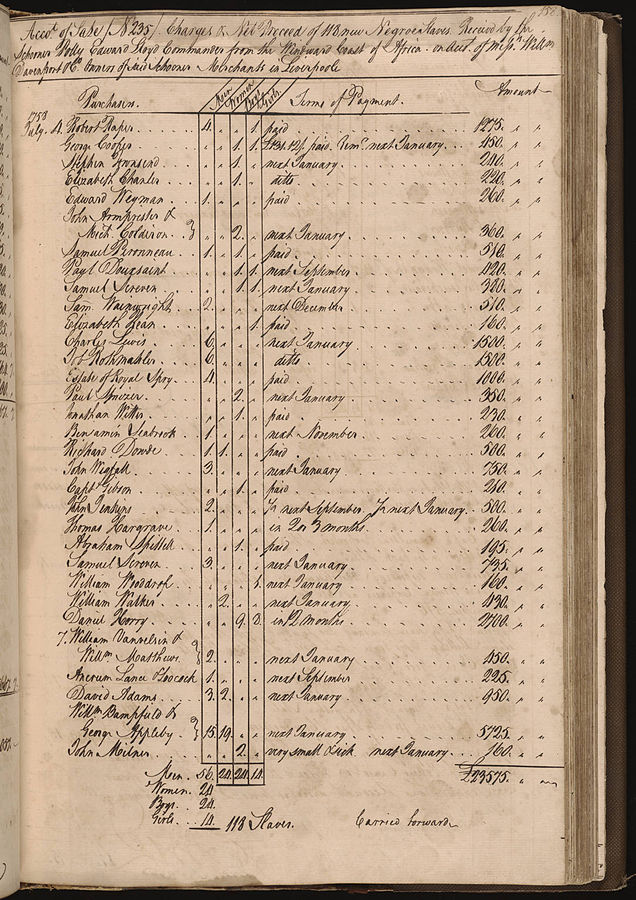 Accot. of Sales /No 235/ Charges & Nett Proceed of 118 new Negroe Slaves Received by the
Schooner Polly Edward Lloyd Commander from the Windward Coast of Africa on Acct. of Messrs. Willm
Davenport & Co. Owners of said Schooner Merchants in Liverpoole
Purchasers. Men Women Boys Girls Terms of Payment. Amount
1758
July. 4. Robert Raper 4. „ „ 1. paid 1275. „ „
George Cooper „ „ 1. 1. paid. Remr. next January 450. „ „
Stephen Townsend „ „ 1. „ next January 210. „ „
Elizabeth Chanler „ „ 1. „ ditto 220. „ „
Edward Weyman 1. „ „ „ paid 260. „ „
John Armpriester &
Mich. Colderon „ „ 2. „ next January 360. „ „
Samuel Peronneau 1. „ 1. „ paid 510. „ „
Paul Douxsaint „ „ 1. 1. next September 420. „ „
Samuel Screven „ „ 1. 1. next January 380. „ „
Sam. Wainwright 2. „ „ „ next December 510. „ „
Elizabeth Jean „ „ „ 1. paid 160. „ „
Charles Lewis 6. „ „ „ next January 1500. „ „
Job Rothmahler 6. „ „ „ ditto 1500. „ „
Estate of Royal Spry 4. „ „ „ paid 1000. „ „
Paul Smizer „ „ 2. „ next January 350. „ „
Jonathan Witter „ „ 1. „ paid 230. „ „
Benjamin Seabrook 1. „ „ „ next November 260. „ „
Richard Dowse 1. 1. „ „ paid 500. „ „
John Wigfall 3. „ „ „ next January 750. „ „
Capt. Gibson „ „ 1. „ paid 210. „ „
John Jenkins 2. „ „ „ ½ next September ½ next January 500. „ „
Thomas Hargrave 1. „ „ „ in 2 or 3 months 260. „ „
Abraham „ „ 1. „ paid 195. „ „
Samuel Screven 3. „ „ „ next January 735. „ „
William Wooddrop „ „ „ 1. next January 160. „ „
William Walker „ 2. „ „ next January 430. „ „
Daniel Horry „ „ 9. 2. in 12 months 2700. „ „
7. William Vanvelsin &
Willm. Matthews 2. „ „ „ next January 450. „ „
Acerum Lance Hocock 1. „ „ „ next September 225. „ „
David Adams 3. 2. „ „ next January 950. „ „
Willm Bampfield &
George Appleby 15. 19. „ „ next January 5725. „ „
John Milner „ „ 2. „ very small & sick next January 160. „ „
Men 56. 24. 24. 14. £23575. „ „
Women 24
Boys 24.
Girls 14. 118 Slaves. Carried forward